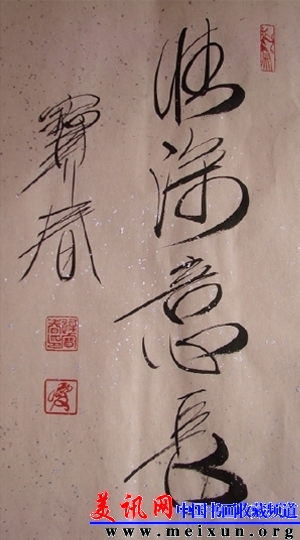 情深意長
寶春
美讯网 中国书画收藏频道
www.meixun.org